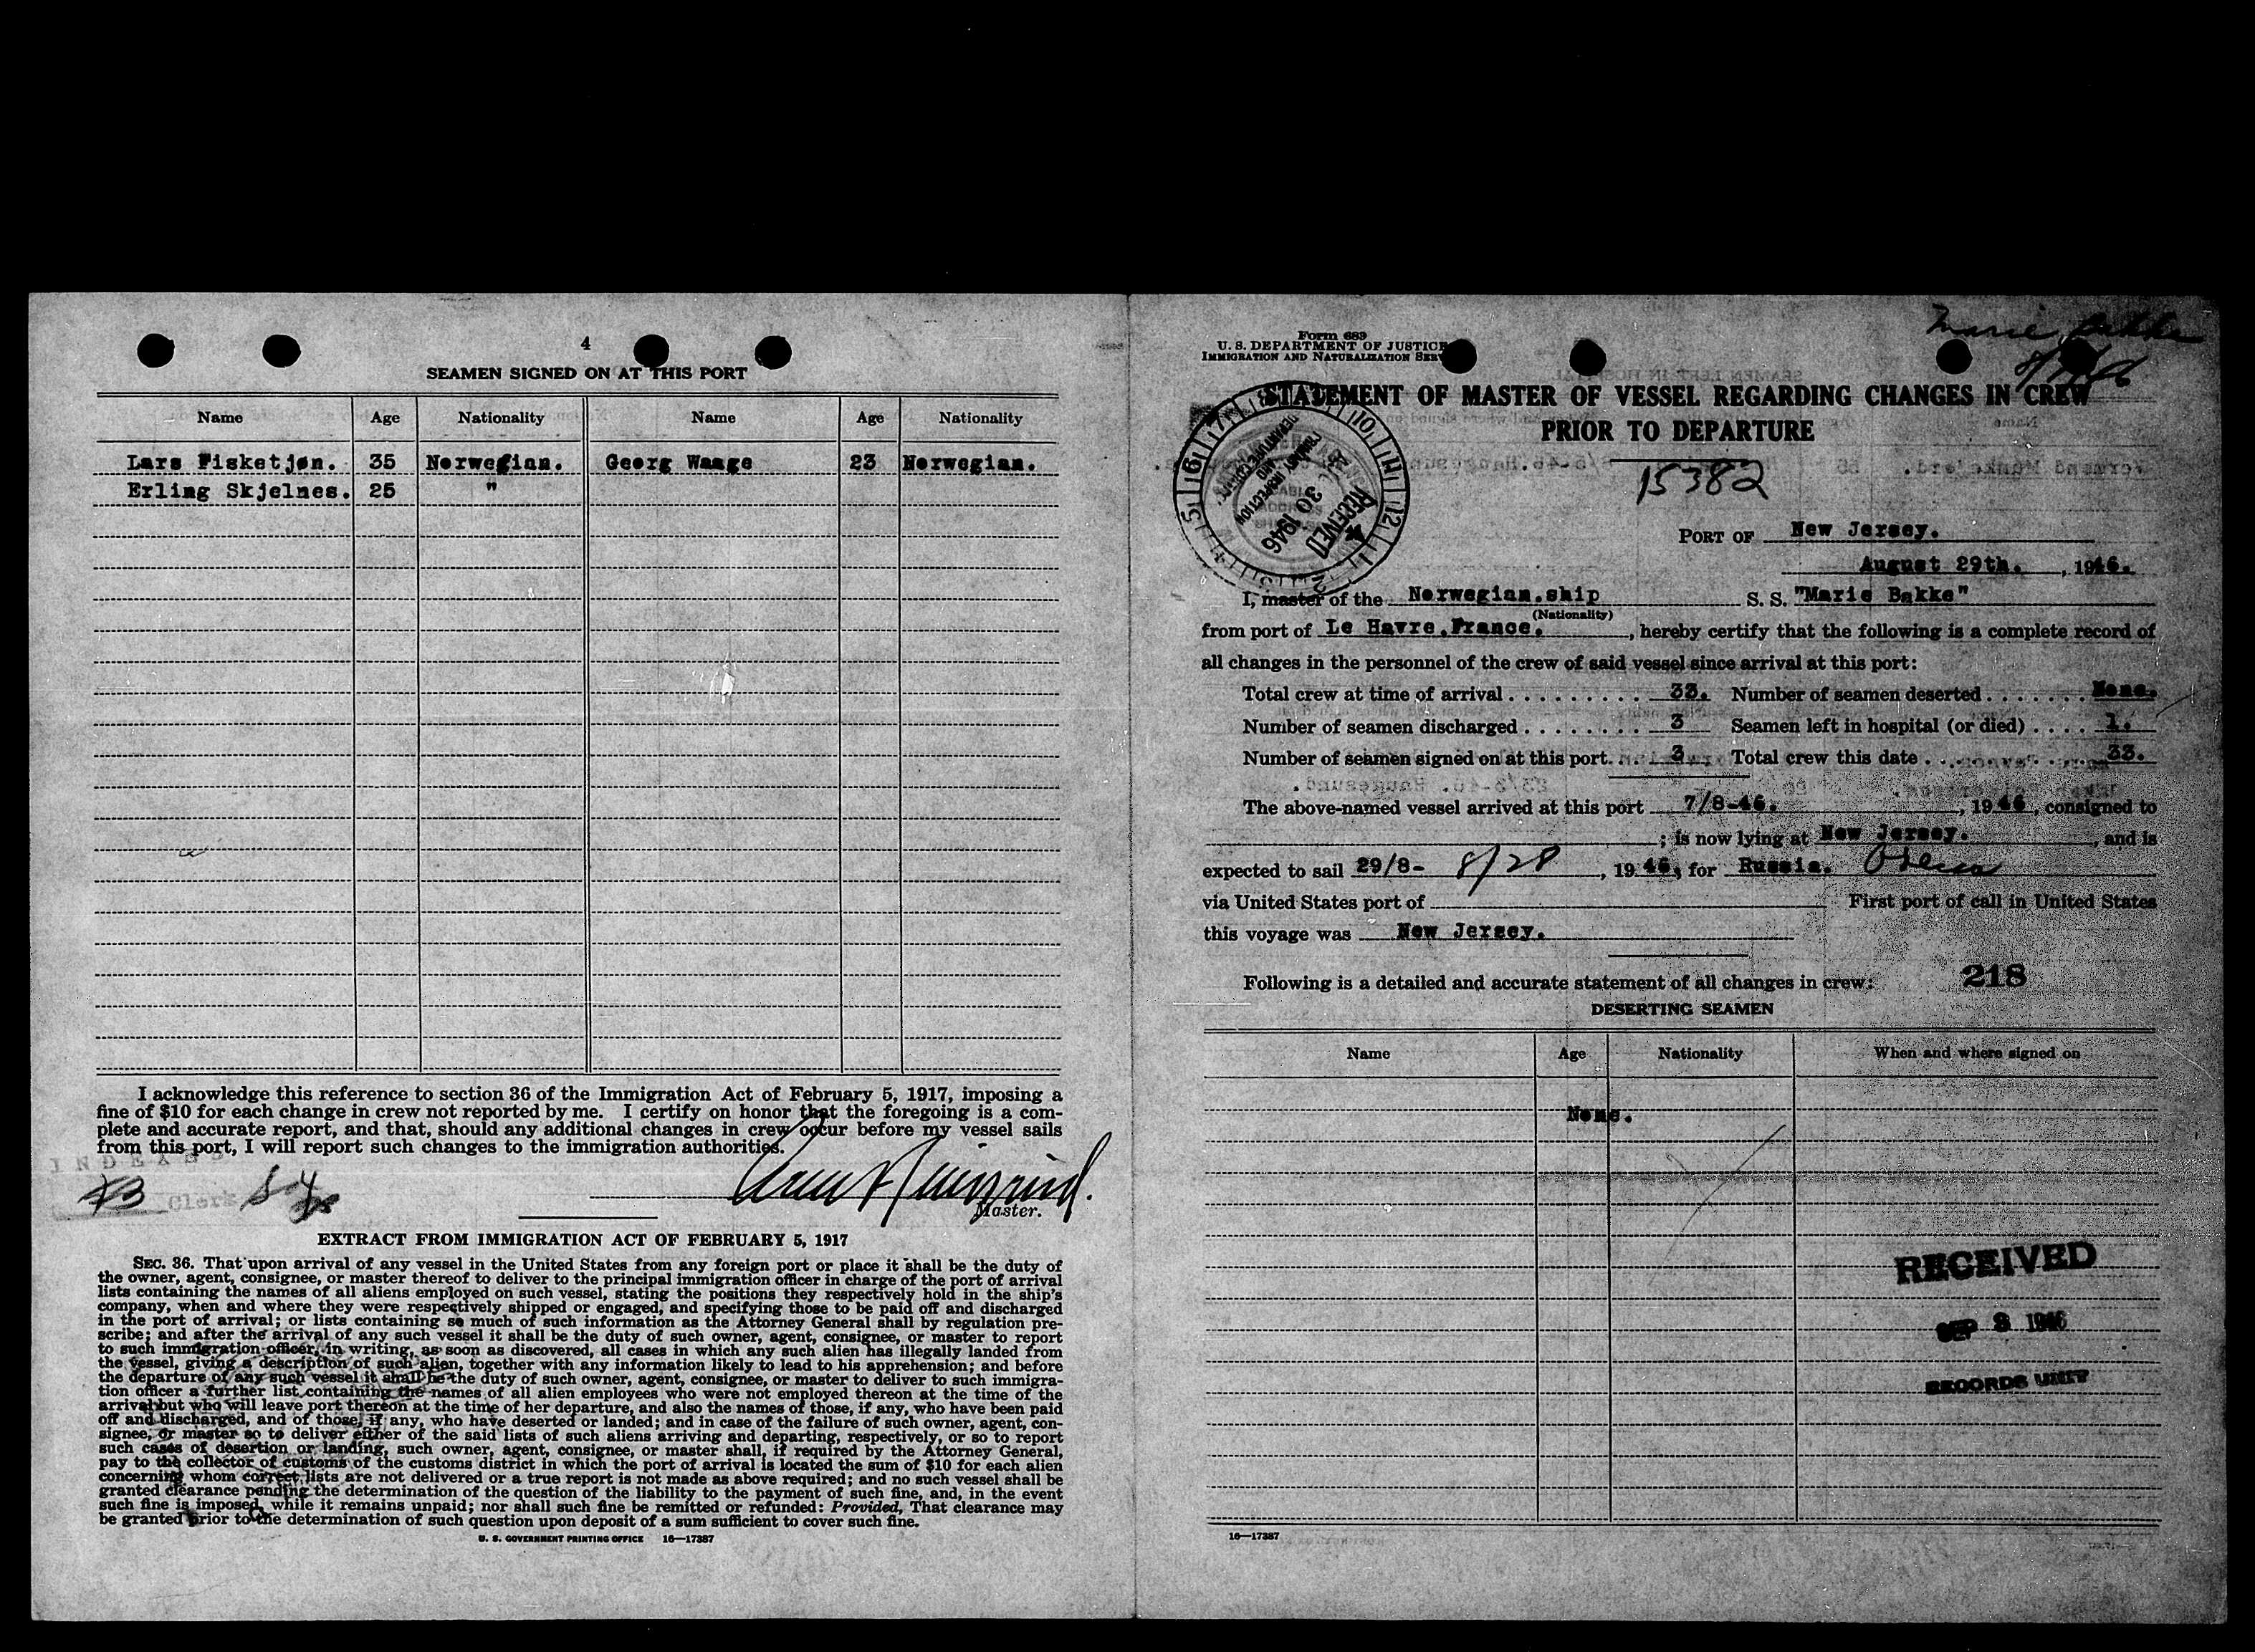 4
SEAMEN SIGNED ON AT THIS PORT
Name Age Nationality Name Age Nationality
Lars Fisketjøn. 35 Norwegian. Georg Waage 23 Norwegian.
Erling Skjelnes. 25 "
I acknowledge this reference to section 36 of the Immigration Act of February 5, 1917, imposing a
fine of $10 for each change in crew not reported by me. I certify on honor that the foregoing is a com-
plete and accurate report, and that, should any additional changes in crew occur before my vessel sails
from this port, I will report such changes to the immigration authorities.
INDEXED
Clerk
Master.
EXTRACT FROM IMMIGRATION ACT OF FEBRUARY 5, 1917
SEC. 36. That upon arrival of any vessel in the United States from any foreign port or place it shall be the duty of
the owner, agent, consignee, or master thereof to deliver to the principal immigration officer in charge of the port of arrival
lists containing the names of all aliens employed on such vessel, stating the positions they respectively hold in the ship's
company, when and where they were respectively shipped or engaged, and specifying those to be paid off and discharged
in the port of arrival; or lists containing so much of such information as the Attorney General shall by regulation pre-
scribe; and after the arrival of any such vessel it shall be the duty of such owner, agent, consignee, or master to report
to such immigration officer, in writing, as soon as discovered, all cases in which any such alien has illegally landed from
the vessel, giving a description of such alien, together with any information likely to lead to his apprehension; and before
the departure of any such vessel it shall be the duty of such owner, agent, consignee, or master to deliver to such immigra-
tion officer a further list containing the names of all alien employees who were not employed thereon at the time of the
arrival but who will leave port thereon at the time of her departure, and also the names of those, if any, who have been paid
off and discharged, and of those, if any, who have deserted or landed; and in case of the failure of such owner, agent, con-
signee, or master so to deliver either of the said lists of such aliens arriving and departing, respectively, or so to report
such cases of desertion or landing, such owner, agent, consignee, or master shall, if required by the Attorney General,
pay to the collector of customs of the customs district in which the port of arrival is located the sum of $10 for each alien
concerning whom correct lists are not delivered or a true report is not made as above required; and no such vessel shall be
granted clearance pending the determination of the question of the liability to the payment of such fine, and, in the event
such fine is imposed, while it remains unpaid; nor shall such fine be remitted or refunded: Provided, That clearance may
be granted prior to the determination of such question upon deposit of a sum sufficient to cover such fine.
U. S. GOVERNMENT PRINTING OFFICE 16—17387
Marie Bakke
Form 689
U. S. DEPARTMENT OF JUSTICE
IMMIGRATION AND NATURALIZATION SERV
STATEMENT OF MASTER OF VESSEL REGARDING CHANGES IN CREW
PRIOR TO DEPARTURE
RECEIVED
30 1946
15382
PORT OF New Jersey.
August 29th. , 1946.
I, master of the Norwegian.ship S. S. "Marie Bakke"
(Nationality)
from port of Le Havre.France. , hereby certify that the following is a complete record of
all changes in the personnel of the crew of said vessel since arrival at this port:
Total crew at time of arrival . . . . . . . . . . 33. Number of seamen deserted . . . . . . . None.
Number of seamen discharged . . . . . . . . 3 Seamen left in hospital (or died) . . . . 1.
Number of seamen signed on at this port. . . 3 Total crew this date . . . . . . . . . 33.
The above-named vessel arrived at this port 7/8-46. , 1946, consigned to
; is now lying at New Jersey. , and is
expected to sail 29/8- 8/28 , 1946, for Russia.
via United States port of First port of call in United States
this voyage was New Jersey.
Following is a detailed and accurate statement of all changes in crew: 218
DESERTING SEAMEN
Name Age Nationality When and where signed on
None.
RECEIVED
SEP 3 1946
RECORDS UNIT
16—17387